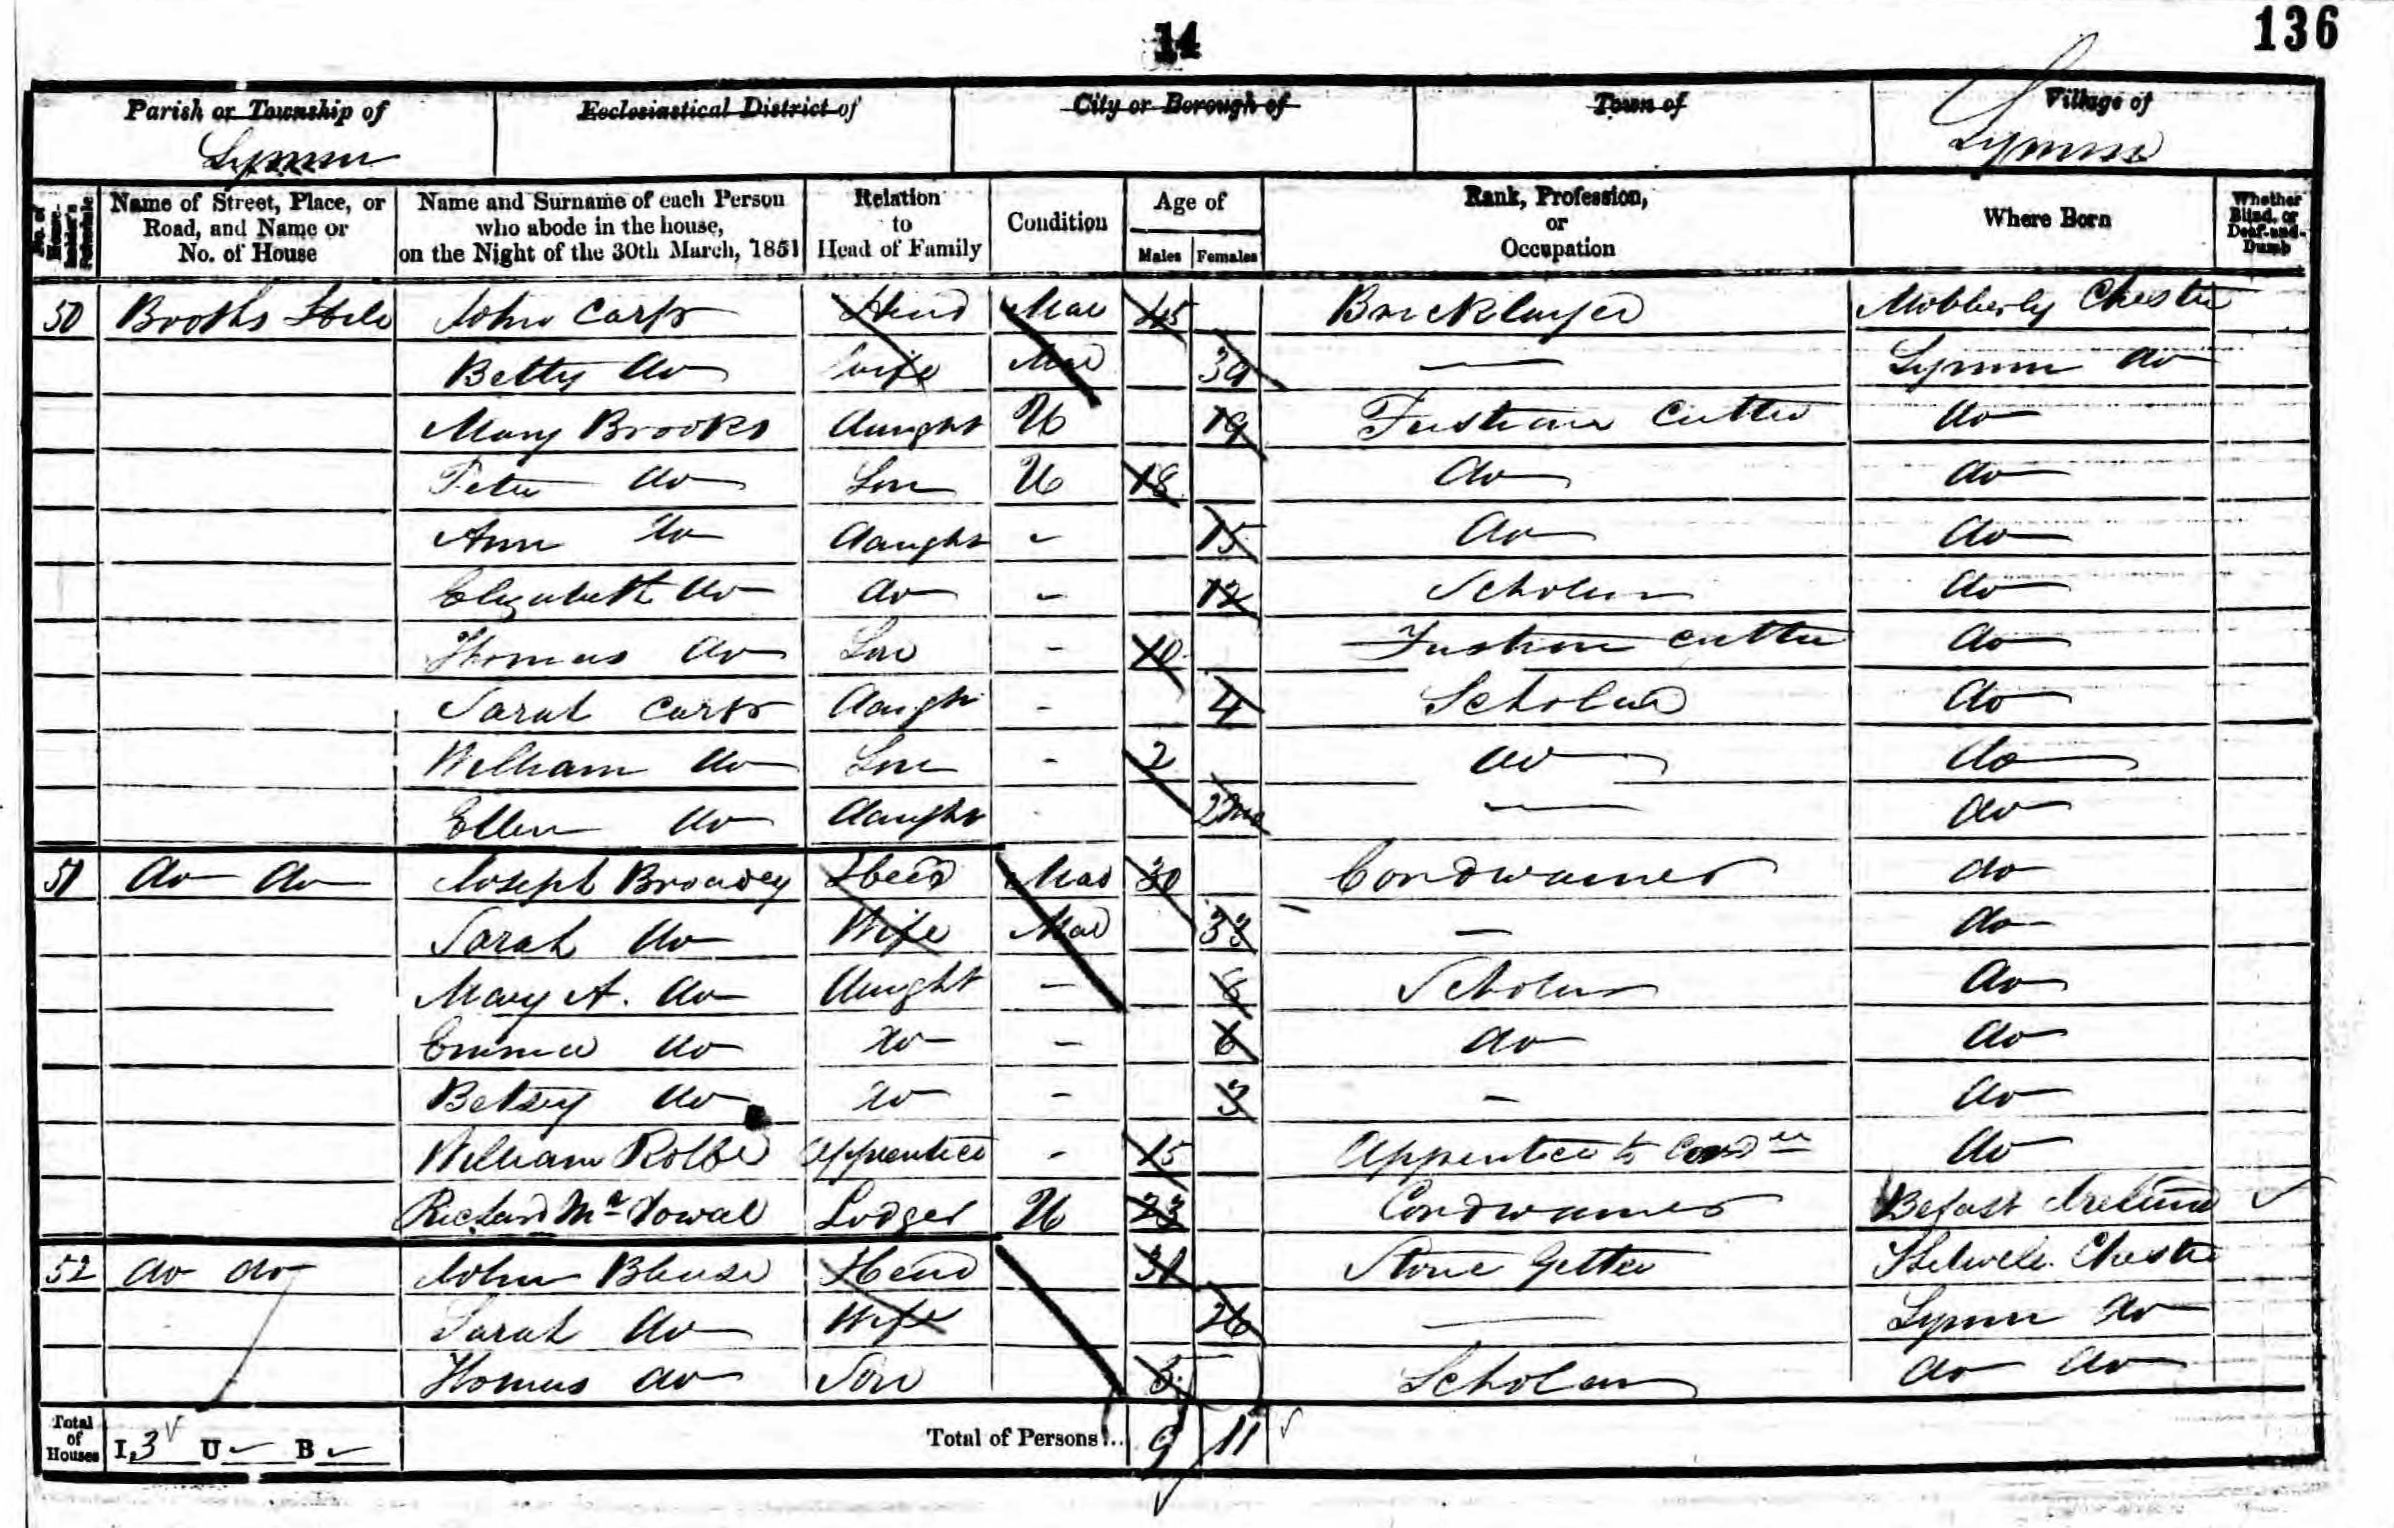 14
136
Parish or Township of
Ecclesiastical District of
City or Borough of
Town of
Village of
Lymm
Lymm
No. of House-holder's Schedule
Name of Street, Place, or Road, and Name or No. of House
Name and Surname of each Person who abode in the house, on the Night of the 30th March, 1851
Relation to Head of Family
Condition
Age of
Males
Females
Rank, Profession, or Occupation
Where Born
Whether Blind, or Deaf-and-Dumb
50 Booths John Head Mar 45 Bricklayer Mobberly Cheste
Betty do Wife Mar 39 — Lymm do
Mary Brooks daught U 19 Fustian Cutter do
Peter do Son U 18 do do
Ann do daught - 15 do do
Elizabeth do do - 12 Scholar do
Thomas do Son - 10 Fustian cutter do
Sarah daught - 4 Scholar do
William do Son - 2 do do
Ellen do daught 2mo — do
51 do do Joseph Head Mar 30 Cordwainer do
Sarah do Wife Mar 33 — do
Mary A. do daught - Scholar do
Emma do do - 6 do do
Betsey do do - 3 - do
William Apprentice - 15 Apprentice to do
Richard Lodger U 23 Cordwainer Befast Ireland
52 do do John Head 31 Stone Getter Thelwell Cheste
Sarah do Wife 26 — Lymm do
Thomas do Son 5 Scholar do do
Total of Houses I. 3 U - B -
Total of Persons... 9 11